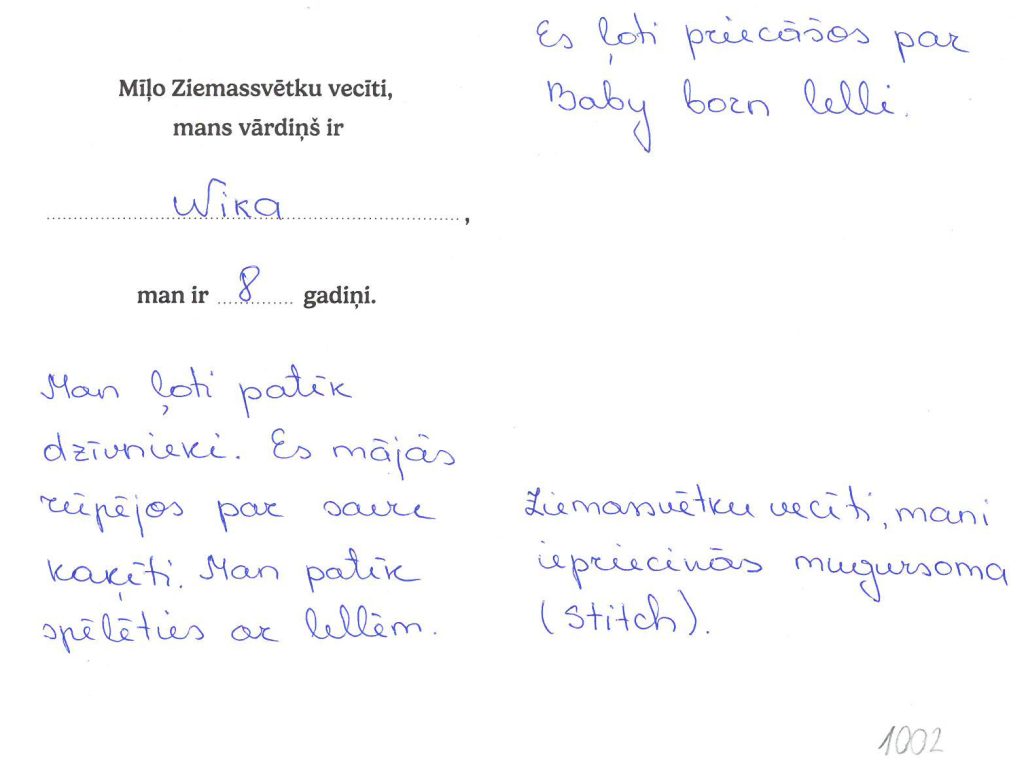 Mīļo Ziemassvētku vecīti,
mans vārdiņš ir
Wika,
man ir 8 gadiņi.
Man ļoti patīk
dzīvnieki. Es mājās
rūpējos par savu
kaķīti. Man patīk
spēlēties ar lellēm.
Es ļoti priecāšos par
Baby born lelli.
Ziemassvētku vecīti, mani
iepriecinās mugursoma
(Stitch).
1002